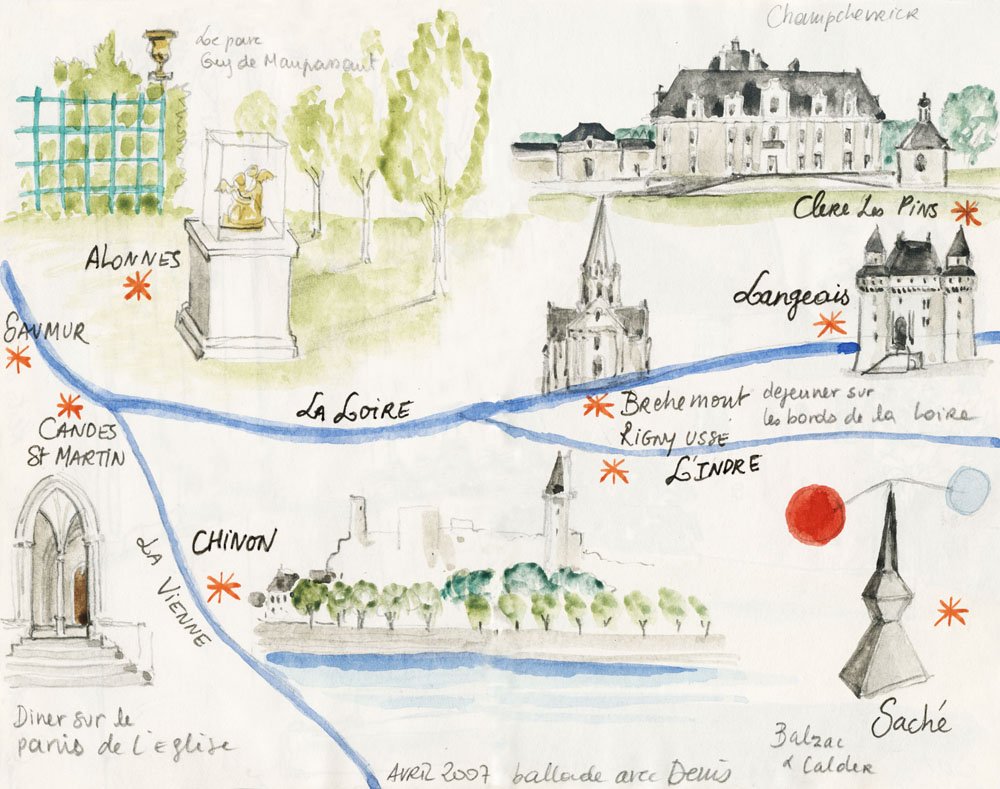 Champchevrier
Le parc
Guy de Maupassant
Clere Les Pins
ALONNES
Langeais
SAUMUR
LA LOIRE
Brehemont
déjeuner sur
les bords de la Loire
CANDES
St MARTIN
RIGNY USSÉ
L'INDRE
CHINON
LA VIENNE
Saché
Diner sur le
parvis de l'Eglise
Balzac
& Calder
AVRIL 2007 ballade avec Denis